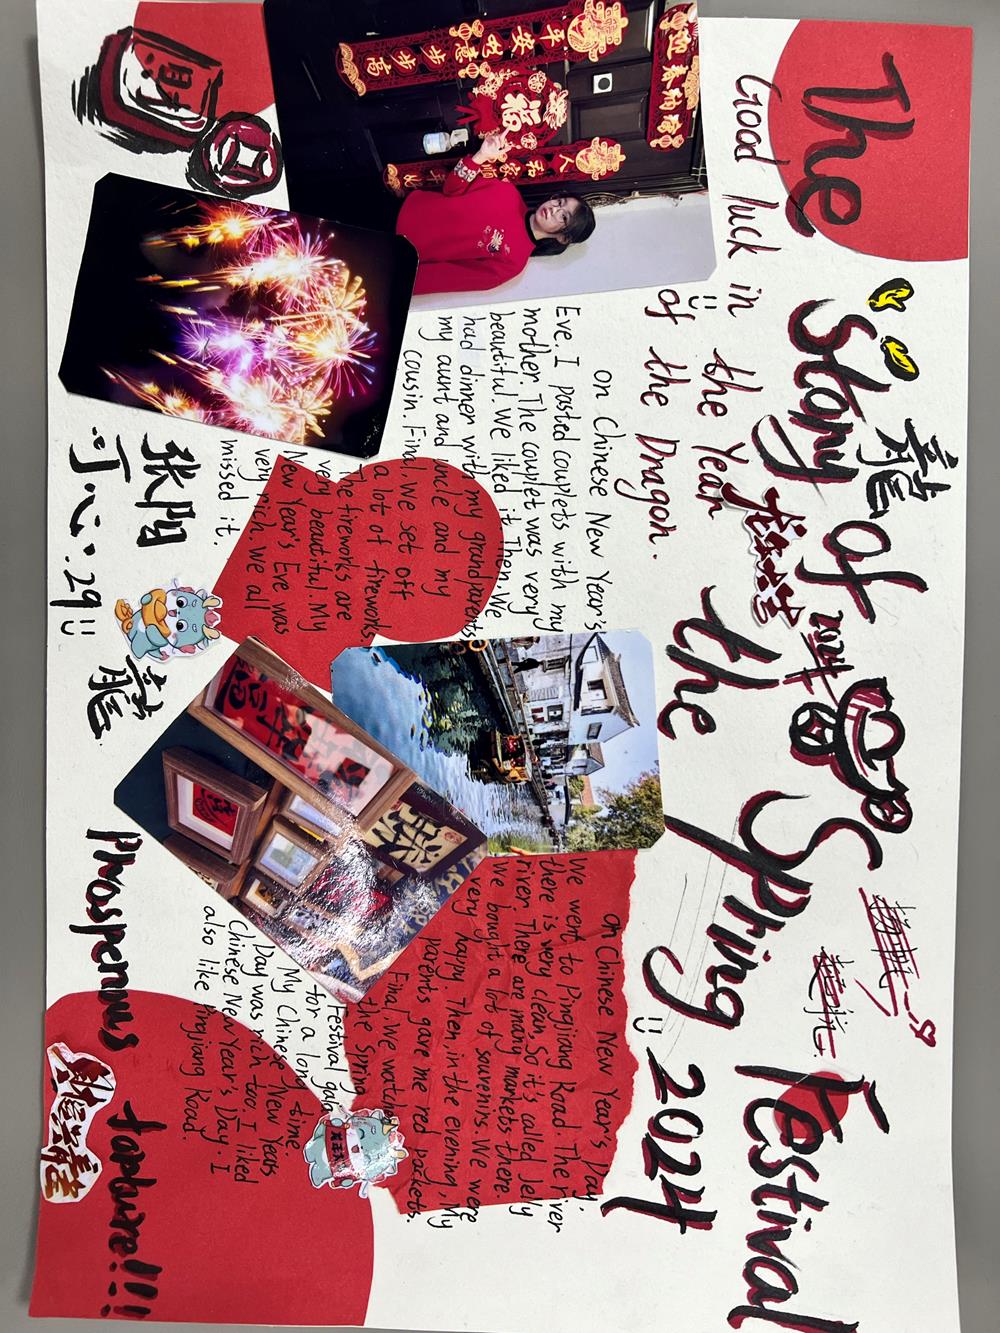 The Story of the Spring Festival
:) 2024
Good luck in the Year
of the Dragon.
:)
龍
2024
財
on Chinese New Year's
Eve. I pasted couplets with my
mother. The couplet was very
beautiful. We liked it. Then, We
had dinner with my grandparents,
my aunt and uncle and my
cousin. Final, we set off
a lot of fireworks.
The fireworks are
very beautiful. My
New Year's Eve was
very rich. We all
missed it.
on Chinese New Year's Day,
We went to Pingjiang Road. The river
there is very clean, So it's called Jelly
river. There are many markets there.
We bought a lot of souvenirs. We were
very happy. Then in the evening, My
parents gave me red packets.
Final, We watched
the Spring
Festival gala
for a long time.
My Chinese New Years
Day was rich too. I liked
Chinese New Year's Day. I
also like Pingjiang Road.
张阳
可心: 29 :)
龍
Phrosperous fortwre!!!
迎春纳福
平安如意步步高
福